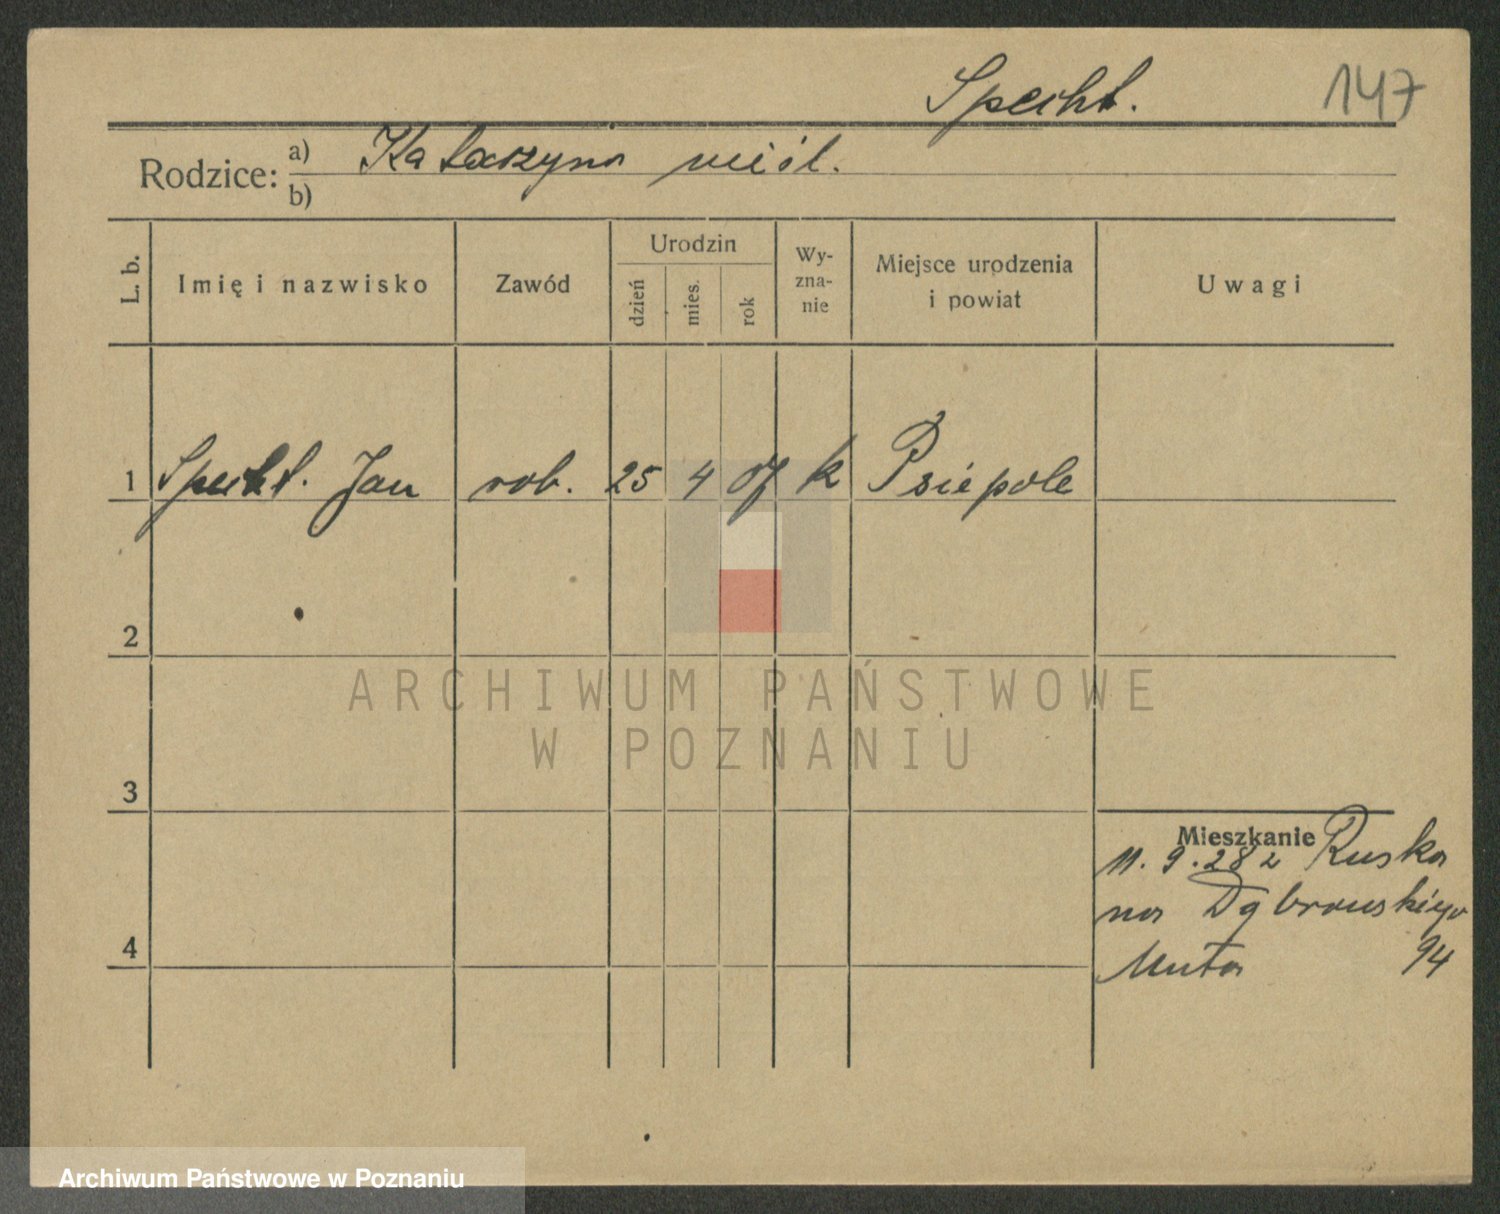 Specht. 147
Rodzice: a) Katarzyna
b)
L. b. Imię i nazwisko Zawód Urodzin dzień mies. rok Wy-zna-nie Miejsce urodzenia i powiat Uwagi
1 Specht. Jan rob. 25 4 07 k Psiepole
2
ARCHIWUM PAŃSTWOWE
W POZNANIU
3
Mieszkanie
11. 9. 28 z Ruska
na Dąbrowskiego
94
4
Archiwum Państwowe w Poznaniu